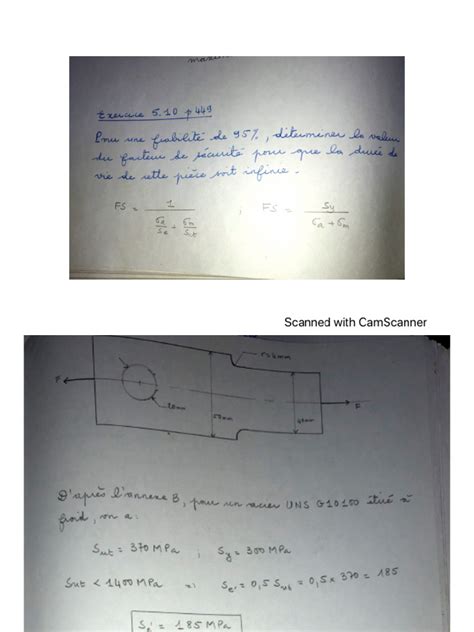 Exercice 5.10 p 449
Pour une fiabilité de 95%, déterminer la valeur
du facteur de sécurité pour que la durée de
vie de cette pièce soit infinie.
FS = 1 / (σa/Se + σm/Sut) ; FS = Sy / (σa + σm)
Scanned with CamScanner
r=4mm
F
20mm
50mm
40mm
F
D'après l'annexe B, pour un acier UNS G10100 étiré à
froid, on a :
Sut = 370 MPa ; Sy = 300 MPa
Sut < 1400 MPa => Se' = 0,5 Sut = 0,5 x 370 = 185
Se' = 185 MPa